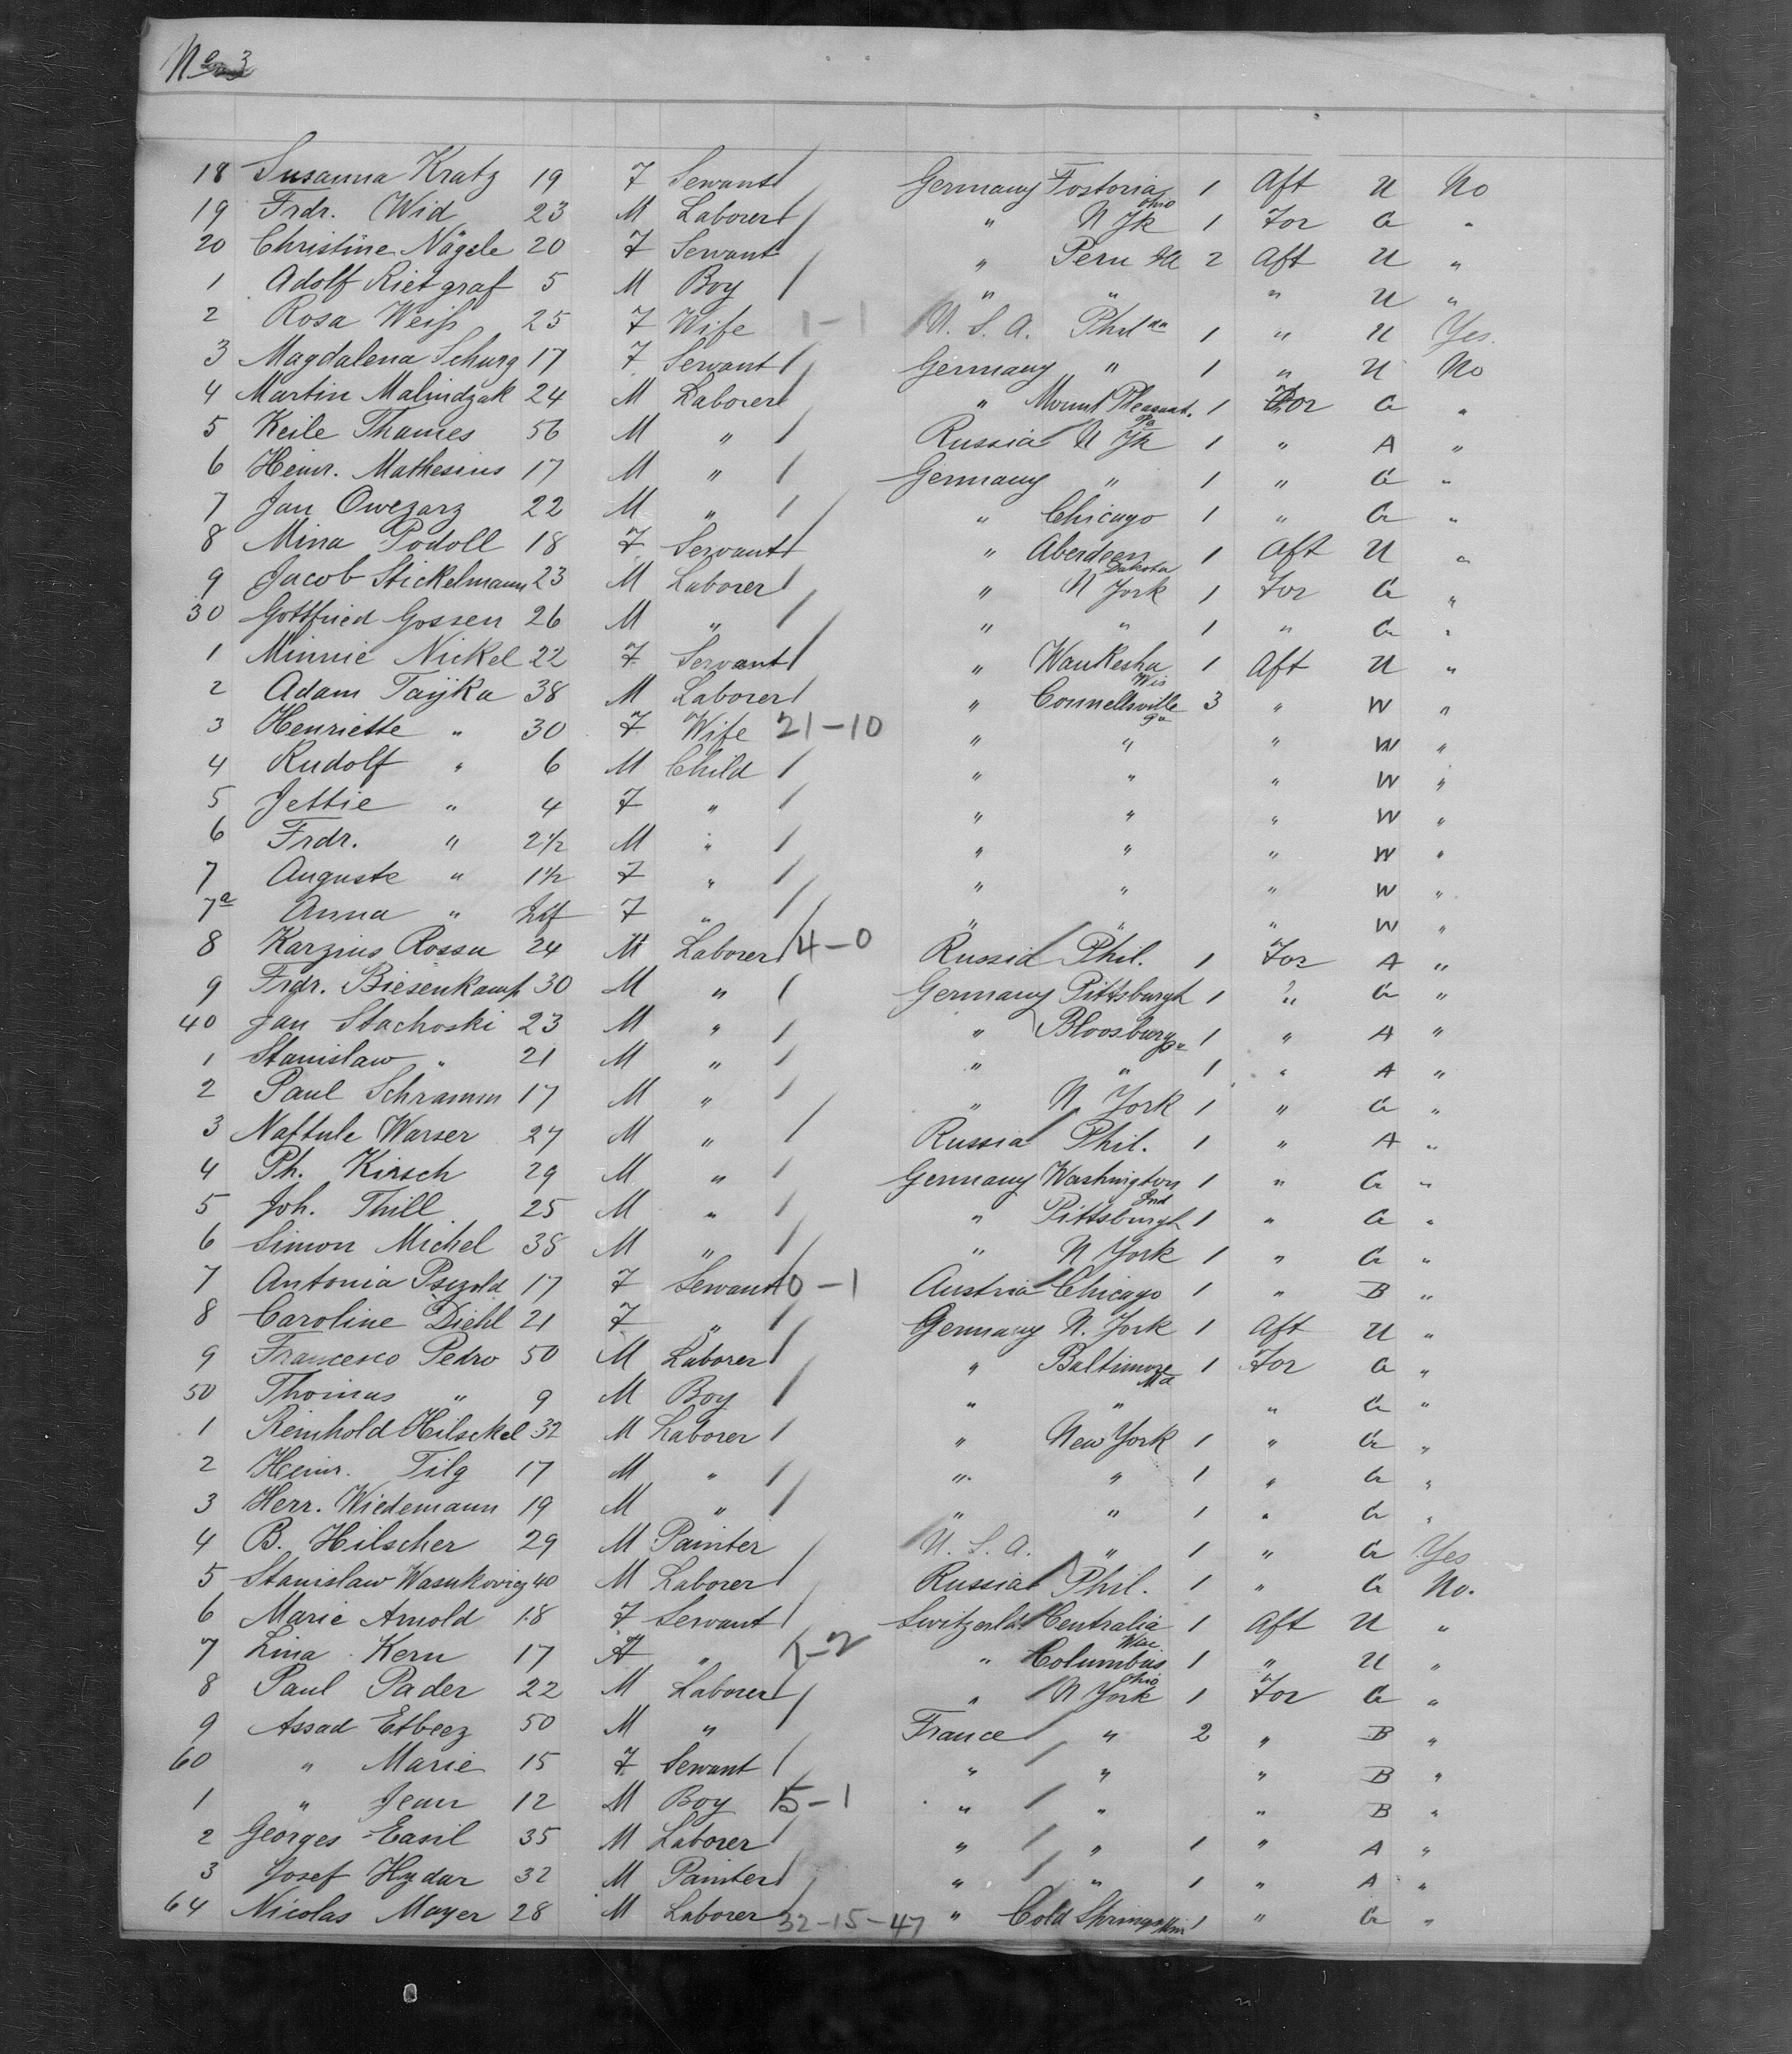 No 3
18 Susanna Kratz 19 F Servant Germany Fostoria Ohio 1 Aft U No
19 Frdr. Wid 23 M Laborer " N Yk 1 For G "
20 Christine Nägele 20 F Servant " Peru Ill 2 Aft U "
1 Adolf Rietgraf 5 M Boy " " " U "
2 Rosa Weiß 25 F Wife 1-1 U. S. A. Phil da 1 " U Yes.
3 Magdalena Schurg 17 F Servant Germany " 1 " U No
4 Martin Malindzak 24 M Laborer " Mount Pleasant. Pa 1 For G "
5 Keile Thames 56 M " Russia N Yk 1 " A "
6 Heinr. Mathesius 17 M " Germany " 1 " G "
7 Jan Owezarz 22 M " " Chicago 1 " G "
8 Mina Podoll 18 F Servant " Aberdeen Dakota 1 Aft U "
9 Jacob Stickelmann 23 M Laborer " N York 1 For G "
30 Gottfried Gossen 26 M " " " 1 " G "
1 Minnie Nickel 22 F Servant " Waukesha Wis 1 Aft U "
2 Adam Tayka 38 M Laborer " Connellsville Pa 3 " W "
3 Henriette " 30 F Wife 21-10 " " " W "
4 Rudolf " 6 M Child " " " W "
5 Jettie " 4 F " " " " W "
6 Frdr. " 2 1/2 M " " " " W "
7 Auguste " 1 1/2 F " " " " W "
7a Anna " Inf F " " " " W "
8 Karzius Rossa 24 M Laborer 4-0 Russia Phil. 1 For A "
9 Frdr. Biesenkamp 30 M " Germany Pittsburgh 1 " G "
40 Jan Stachoski 23 M " " Bloosburg Pa 1 " A "
1 Stanislaw " 21 M " " " 1 " A "
2 Paul Schramm 17 M " " N York 1 " G "
3 Naftule Warser 27 M " Russia Phil. 1 " A "
4 Ph. Kirsch 29 M " Germany Washington Ind 1 " G "
5 Joh. Thill 25 M " " Pittsburgh 1 " G "
6 Simon Michel 38 M " " N York 1 " G "
7 Antonia 17 F Servant 0-1 Austria Chicago 1 " B "
8 Caroline Diehl 21 F " Germany N. York 1 Aft U "
9 Francesco Pedro 50 M Laborer " Baltimore Md 1 For G "
50 Thomas " 9 M Boy " " " G "
1 Reinhold Hilsckel 32 M Laborer " New York 1 " G "
2 Heinr. Tilg 17 M " " " 1 " G "
3 Herr. Wiedemann 19 M " " " 1 " G "
4 B. Hilscher 29 M Painter U. S. A. " 1 " G Yes
5 Stanislaw Wasukovicz 40 M Laborer Russia Phil. 1 " G No.
6 Marie Arnold 18 F Servant Switzerld. Centralia 1 Aft U "
7 Lina Kern 17 F " 1-2 " Columbus Ohio 1 " U "
8 Paul Pader 22 M Laborer " N York 1 For G "
9 Assad Etbeez 50 M " France " 2 " B "
60 " Marie 15 F Servant " " " B "
1 " Jean 12 M Boy 5-1 " " " B "
2 Georges Easil 35 M Laborer " " 1 " A "
3 Josef Hydar 32 M Painter " " 1 " A "
64 Nicolas Mayer 28 M Laborer 32-15-47 " Cold Springs Min 1 " G "